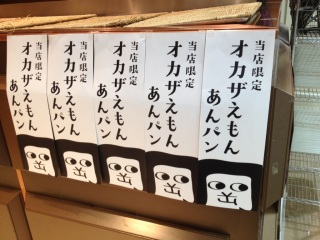 当店限定
オカザえもん
あんパン
当店限定
オカザえもん
あんパン
当店限定
オカザえもん
あんパン
当店限定
オカザえもん
あんパン
当店限定
オカザえもん
あんパン